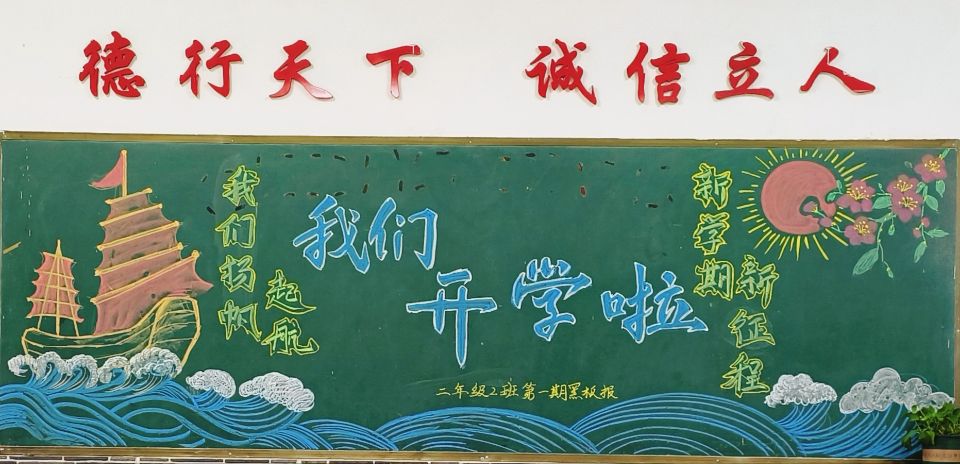 德行天下 诚信立人
我们扬帆
起航
我们
开学啦
新学期
新征程
二年级2班第一期黑板报